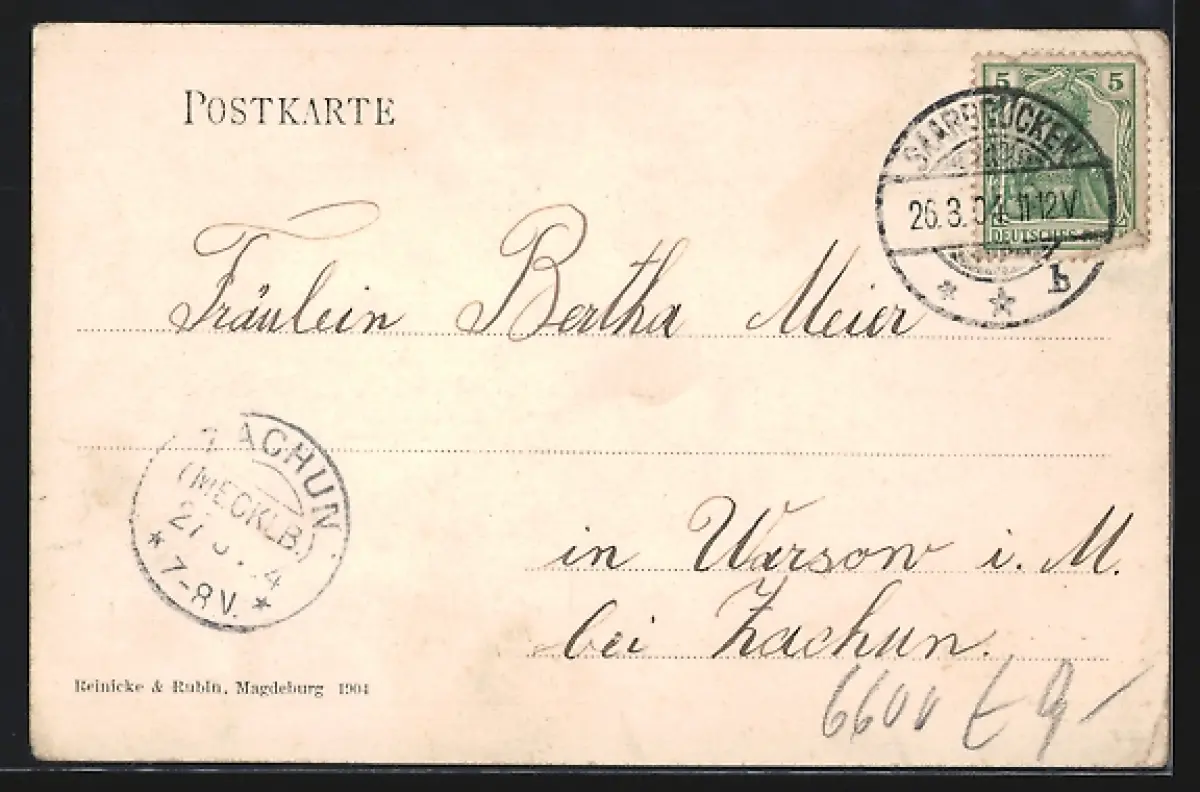 POSTKARTE
5 5
SAARBRÜCKEN
26.3.04. 11-12V
DEUTSCHES
b
Fräulein Bertha Meier
ZACHUN
(MECKLB.)
27 4
7-8V.
in Warsow i. M.
bei Zachun.
Reinicke & Rubin, Magdeburg 1904
6600